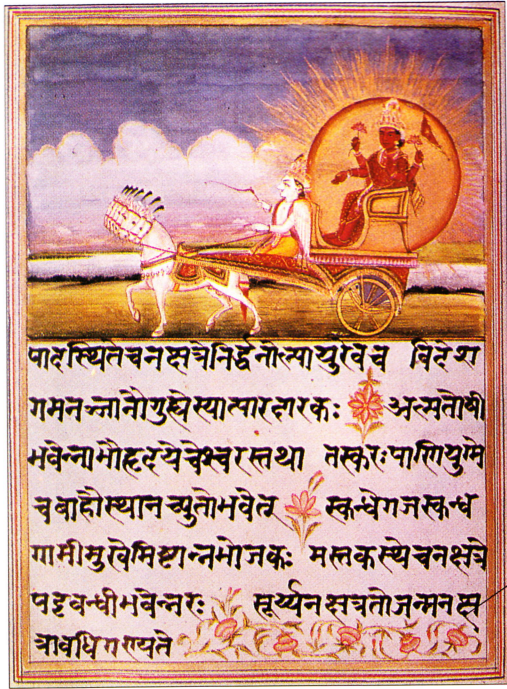 पादस्थितेचनक्षत्रेनिर्द्धनोल्पायुरेवच विदेश
गमनन्जानौगुह्येस्यात्पारदारकः अल्पतोषी
भवेन्नाभौहृदयेचेश्वरस्तथा तस्करःपाणियुग्मे
चबाहौस्थानच्युतोभवेत् स्कन्धेगजस्कन्ध
गामीमुखेमिष्टान्नभोजकः मस्तकस्थेचनक्षत्रे
पट्टबन्धीभवेन्नरः सूर्य्यनक्षत्रतोजन्मनक्ष
त्रावधिगण्यते